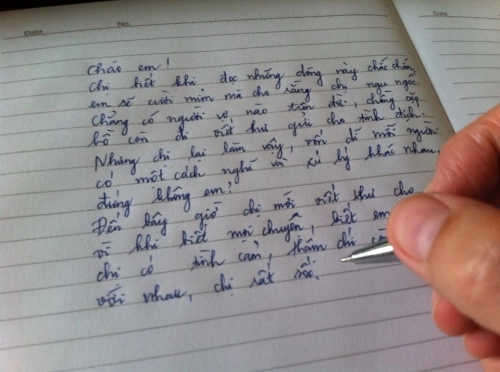 Date
No.
Date
Chào em!
Chị biết khi đọc những dòng này chắc chắn
em sẽ cười mỉm mà cho rằng chị ngu ngốc
Chẳng có người vợ nào trên đời, chồng cặp
bồ còn đi viết thư gửi cho tình địch.
Nhưng chị lại làm vậy, vốn dĩ mỗi người
có một cách nghĩ và xử lý khác nhau,
đúng không em?
Đến bây giờ chị mới viết thư cho
vì khi biết mọi chuyện, biết em
chị có tình cảm, thậm chí
với nhau, chị rất sốc.